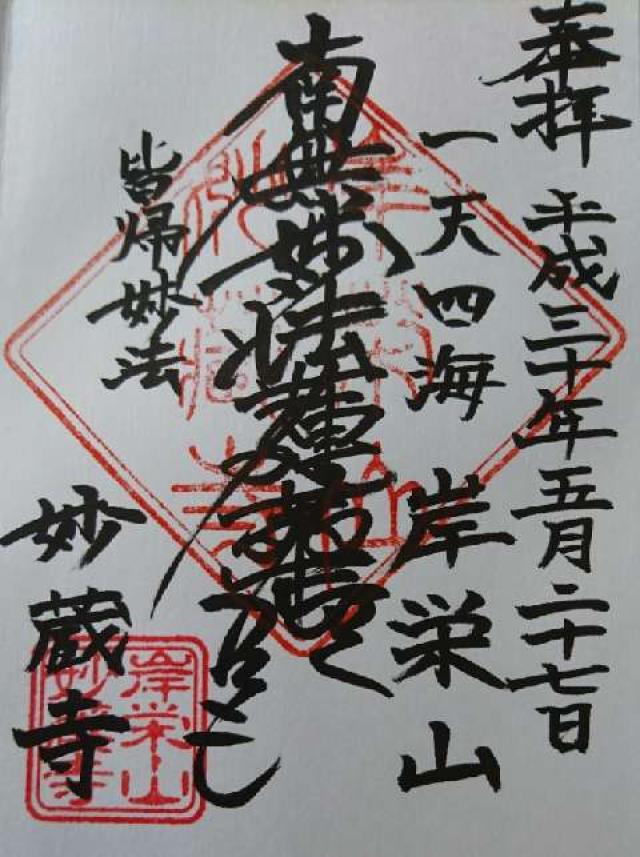 奉拝 平成三十年五月二十七日
一天四海 岸栄山
南無妙法蓮華経
皆帰妙法
妙蔵寺
岸栄山
妙蔵寺